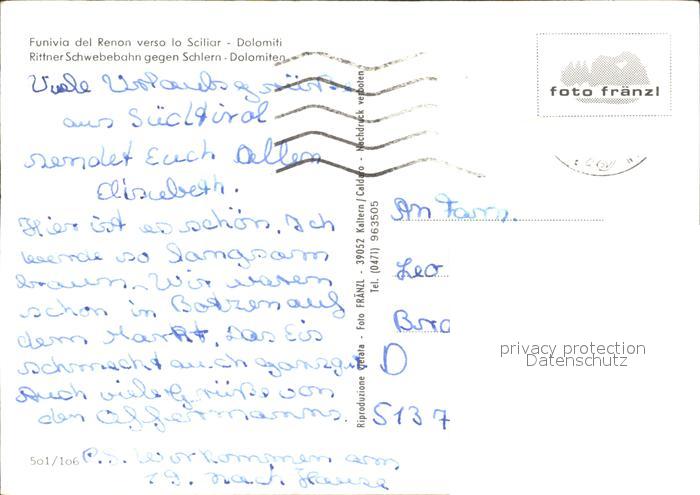 Funivia del Renon verso lo Sciliar - Dolomiti
Rittner Schwebebahn gegen Schlern - Dolomiten
Viele Urlaubsgrüße
aus Südtirol
sendet Euch Allen
Elisabeth.
Hier ist es schön. Ich
werde so langsam
braun. Wir waren
schon in Botzen auf
dem Markt. Das Eis
schmeckt auch ganz gut
Auch viele Grüße von
den
P.S. Wir kommen am
19. nach Hause
501/106
Riproduzione vietata - Foto FRÄNZL - 39052 Kaltern/Caldaro - Nachdruck verboten
Tel. (0471) 963505
foto fränzl
An Fam.
Leo
D
5137
privacy protection
Datenschutz